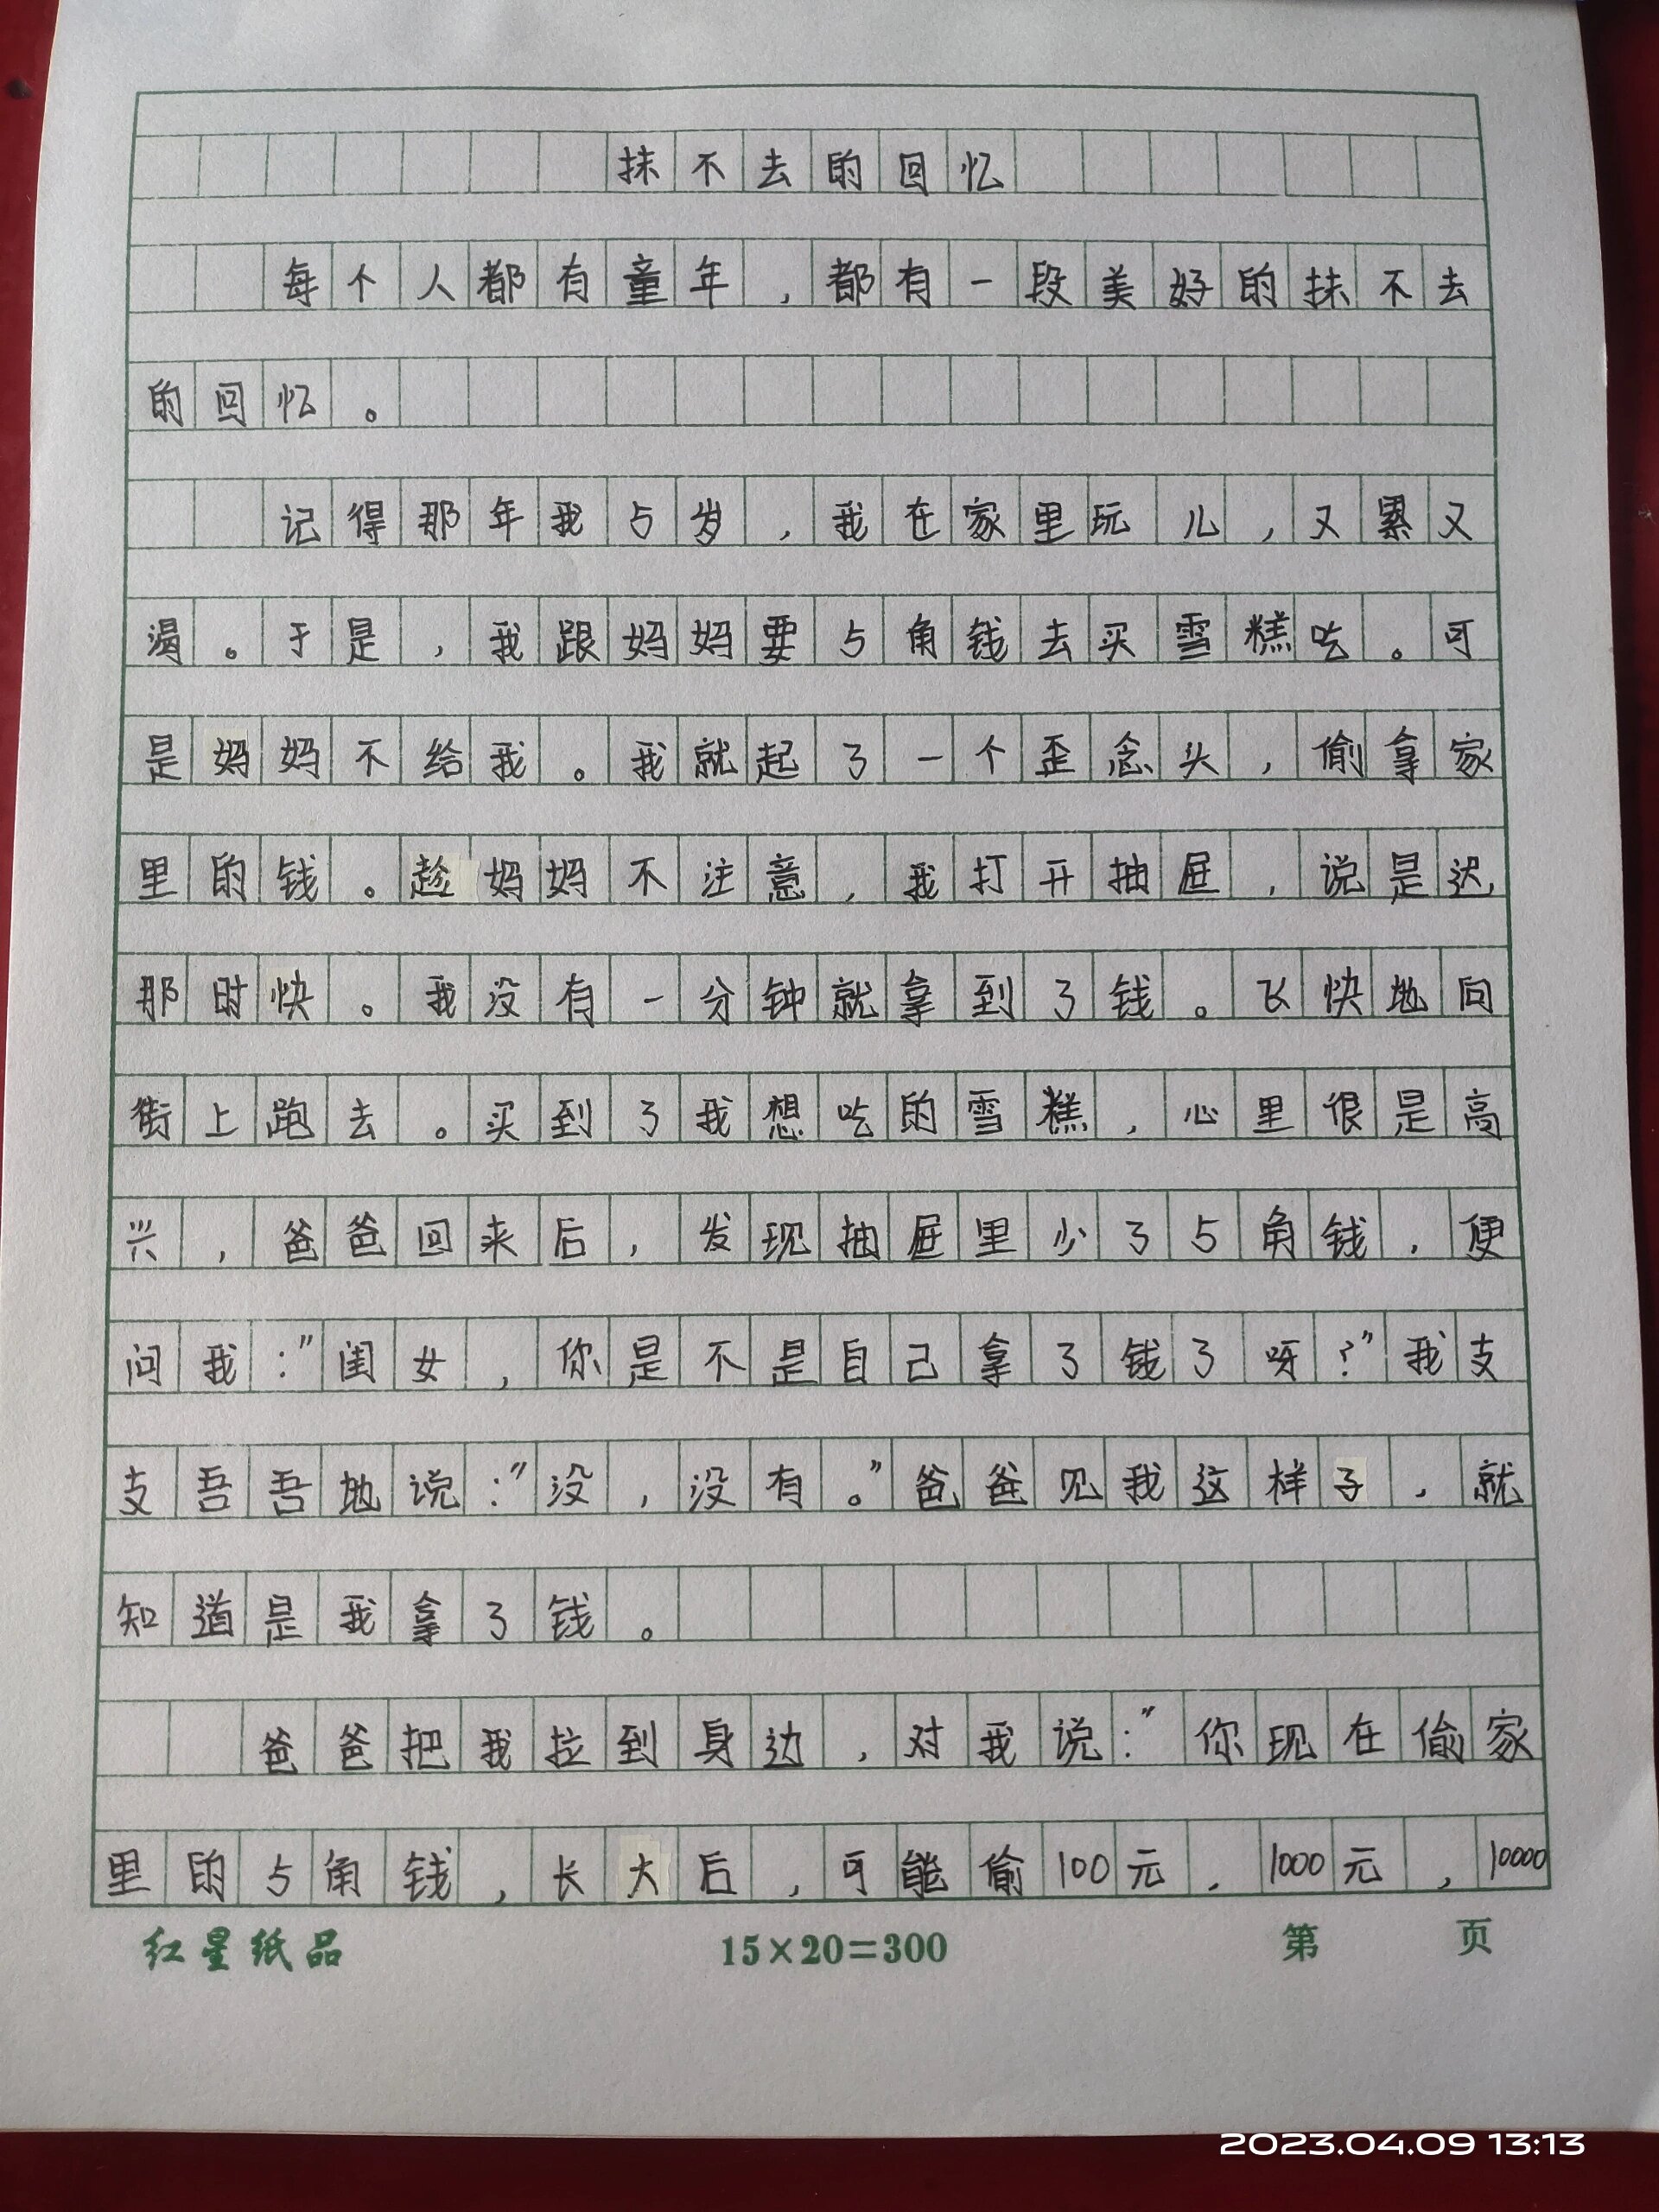 抹不去的回忆
每个人都有童年,都有一段美好的抹不去
的回忆。
记得那年我5岁,我在家里玩儿,又累又
渴。于是,我跟妈妈要5角钱去买雪糕吃。可
是妈妈不给我。我就起了一个歪念头,偷拿家
里的钱。趁妈妈不注意,我打开抽屉,说是迟
那时快。我没有一分钟就拿到了钱。飞快地向
街上跑去。买到了我想吃的雪糕,心里很是高
兴,爸爸回来后,发现抽屉里少了5角钱,便
问我:"闺女,你是不是自己拿了钱了呀?"我支
支吾吾地说:"没,没有。"爸爸见我这样子,就
知道是我拿了钱。
爸爸把我拉到身边,对我说:"你现在偷家
里的5角钱,长大后,可能偷100元,1000元,10000
红星纸品 15×20=300 第 页
2023.04.09 13:13